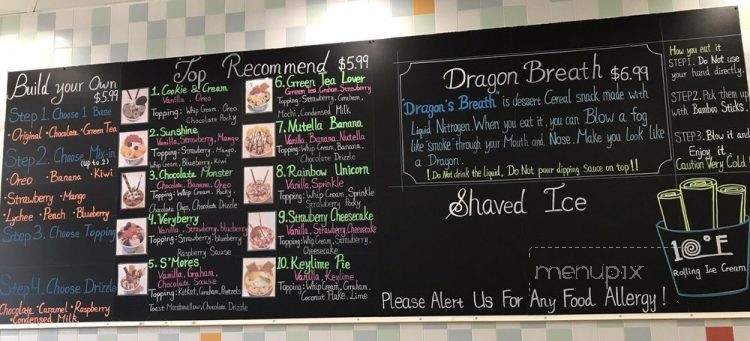 Build your Own
$5.99
Step 1. Choose 1 Base
• Original • Chocolate • Green Tea
Step 2. Choose Mix-in
(up to 2)
• Oreo • Banana • Kiwi
• Strawberry • Mango
• Lychee • Peach • Blueberry
Step 3. Choose Topping
Step 4. Choose Drizzle
Chocolate • Caramel • Raspberry
• Condensed Milk
Top Recommend $5.99
1. Cookie & Cream
Vanilla, Oreo
Topping: Whip Cream, Oreo
Chocolate Pocky
2. Sunshine
Vanilla, Strawberry, Mango
Topping: Strawberry, Mango,
Whip Cream, Blueberry, Kiwi
3. Chocolate Monster
Chocolate, Banana, Oreo
Topping: Whip Cream, Pocky
Chocolate Chips, Chocolate Drizzle
4. Veryberry
Vanilla, Strawberry, blueberry
Topping: Strawberry, blueberry
Raspberry Sause
5. S'Mores
Vanilla, Graham,
Chocolate Sause
Topping: Kitkat, Graham, Pretzels
Toast Marshmallow, Chocolate Drizzle
6. Green Tea Lover
Green Tea, Graham, Strawberry
Topping: Strawberry, Graham,
Mochi, Condensed Milk
7. Nutella Banana
Vanilla, Banana, Nutella
Topping: Whip Cream, Banana,
Chocolate Drizzle
8. Rainbow Unicorn
Vanilla, Sprinkle
Topping: Whip Cream, Sprinkle
Strawberry Pocky
9. Strawberry Cheesecake
Vanilla, Strawberry, Cheesecake
Topping: Whip Cream, Strawberry,
Cheesecake
10. Keylime Pie
Vanilla, Keylime
Topping: Whip Cream, Graham,
Coconut Flake, Lime
Dragon Breath $6.99
"Dragon's Breath" is dessert Cereal snack made with
Liquid Nitrogen. When you eat it, you can Blow a fog
like smoke through your Mouth and Nose. Make you Look like
a Dragon.
! Do Not drink the Liquid, Do Not pour dipping Sauce on top !!
How you eat it
STEP 1. Do Not use
your hand directly.
STEP 2. Pick them up
with Bamboo Sticks.
STEP 3. Blow it and
Enjoy it.
Caution Very Cold !
Shaved Ice
10°F
Rolling Ice Cream
menupix
Please Alert Us For Any Food Allergy !